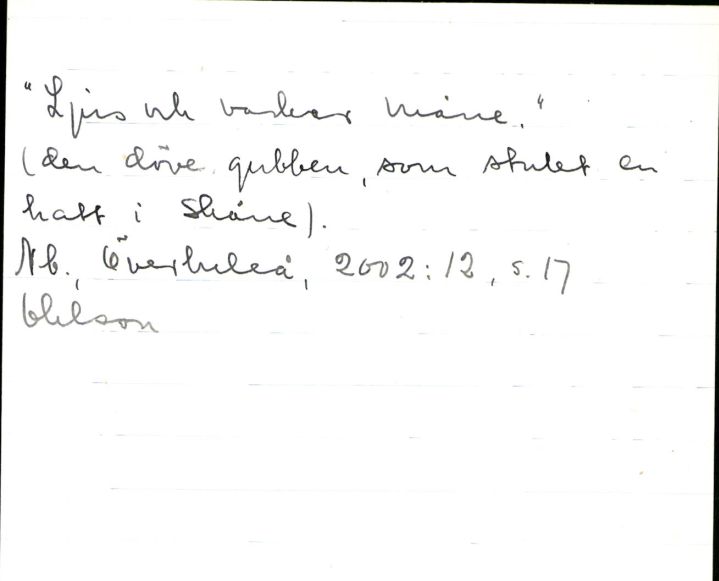 "Ljus och vacker måne."
(den döve gubben, som stulet en
hatt i Skåne).
Nb., Överluleå, 2002:12, s. 17
Ohlson